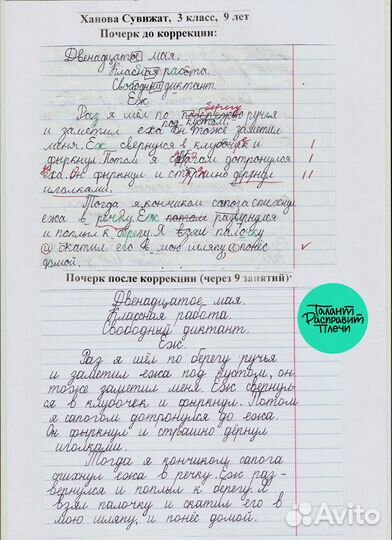 Ханова Сувижат, 3 класс, 9 лет
Почерк до коррекции:
Двенадцата мая.
Класная работа.
Свободный диктант.
Ёж.
берегу
Раз я шёл по ручья
под кустом,
и заметил ежа он тоже заметил
меня. Ёж свернулся в клубочек и
фыркнул. Потом я сапогам дотронулся
ежа. Он фыркнул и страшно дёрнул
иголками.
Тогда я кончиком сапога спихнул
ежа в речку. Ёж потом развернулся
и поплыл к берегу. Я взял палочку
и скатил его в мою шляпу и понёс
домой.
Почерк после коррекции (через 9 занятий):
Двенадцатое мая.
Классная работа.
Свободный диктант.
Ёж.
Раз я шёл по берегу ручья
и заметил ежа под кустом, он
тоже заметил меня. Ёж свернул-
ся в клубочек и фыркнул. Потом
я сапогом дотронулся до ежа.
Он фыркнул и страшно дёрнул
иголками.
Тогда я кончиком сапога
спихнул ежа в речку. Ёж раз-
вернулся и поплыл к берегу. Я
взял палочку и скатил его в
мою шляпу, и понёс домой.
Талант
Расправит
Плечи
Avito